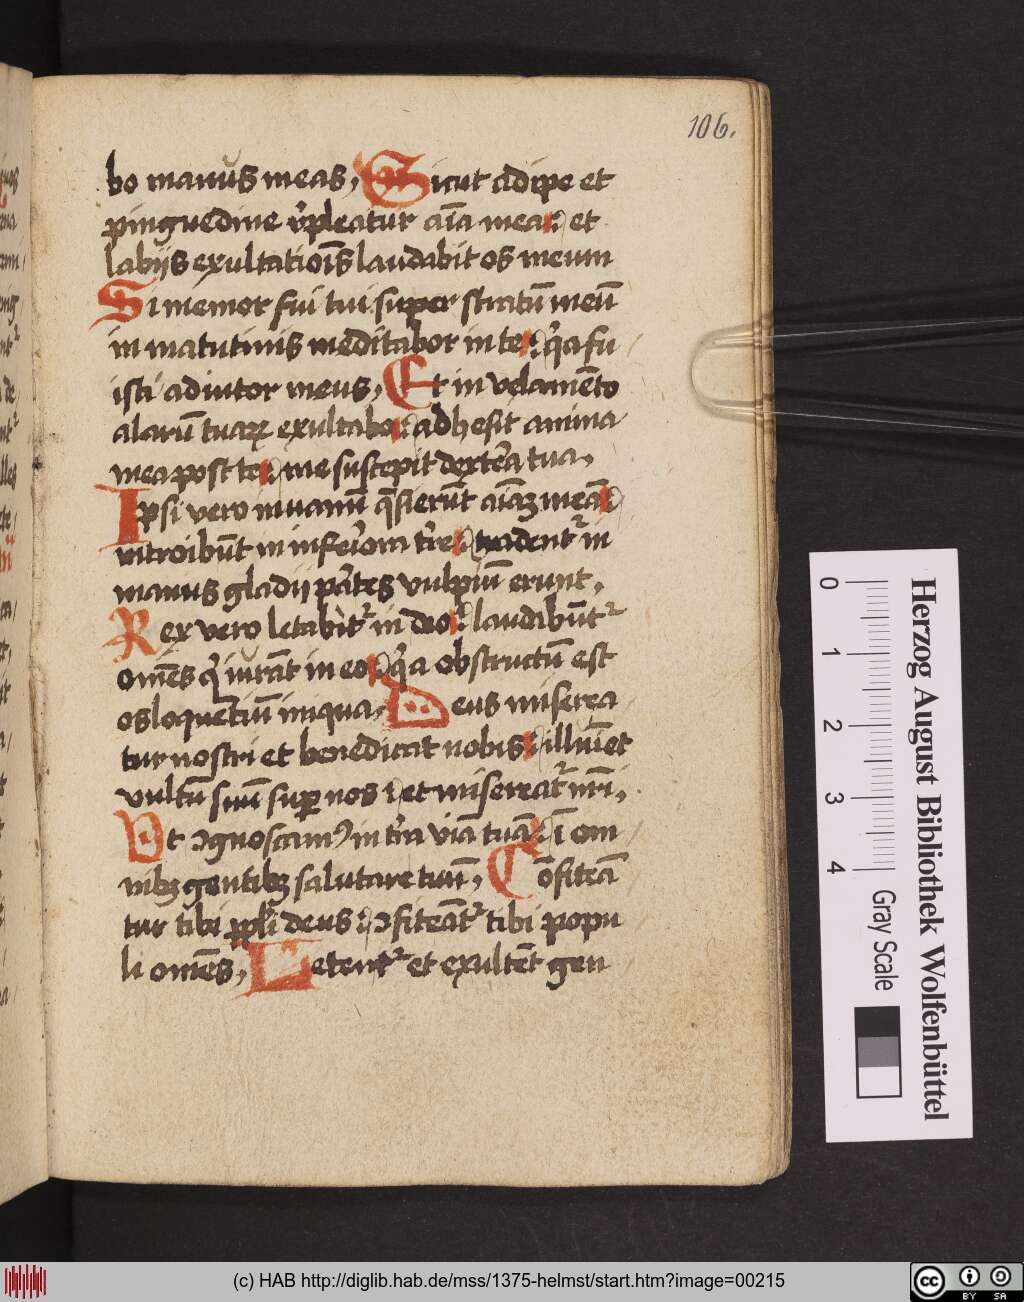 106.
bo manus meas, Sicut adipe et
pinguedine r̾pleatur aīa mea: et
labijs exultatiōīs laudabit os meum
Si memor fui tui super stratū meū
in matutinis meditabor in te: q̾a fu
isti adiutor meus, Et in velamēto
alarū tuaꝝ exultabo: adhesit anima
mea post te: me suscepit dext̾a tua,
Ipsi vero in vanū q̄sierūt aīaꝫ meā:
introibūt in inferiora t̾re: tradent᷑ in
manus gladij p̾tes vulpiū erunt,
Rex vero letabit᷑ in deo: laudabūt᷑
om̄es q̾ iurāt in eo: q̾a obstructū est
os loquetiū iniqua, Deus miserea
tur nostri et benedicat nobis: illuīet
vultū suū suꝑ nos: et misereat᷑ nr̄i,
Ut ꝯgnoscamꝰ in t̾ra viā tuā: ī om
nibꝫ gentibꝫ salutare tuū, Cōfiteā
tur tibi ppl̄i deus: ꝯfiteāt᷑ tibi popu
li om̄es, Letent᷑ et exultēt gen
0 1 2 3 4
Herzog August Bibliothek Wolfenbüttel
Gray Scale
(c) HAB http://diglib.hab.de/mss/1375-helmst/start.htm?image=00215
cc BY SA